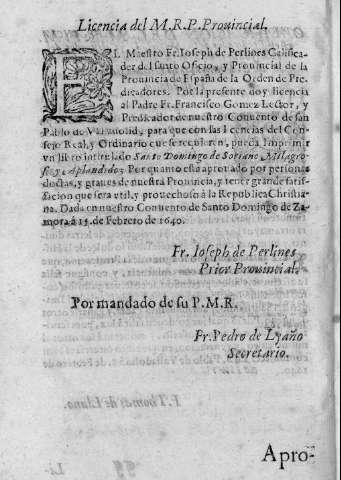 Licencia del M.R.P.Prouincial.
EL Maestro Fr. Ioseph de Perlines Califica-
dor del santo Oficio, y Prouincial de la
Prouincia de España de la Orden de Pre-
dicadores. Por la presente doy licencia
al Padre Fr. Francisco Gomez Lector, y
Predicador de nuestro Conuento de san
Pablo de Valladolid, para que con las licencias del Con-
sejo Real, y Ordinario que se requieren, pueda Imprimir
vn libro intitulado Santo Domingo de Soriano Milagro-
so, y Aplaudido; Por quanto està aprouado por personas
doctas, y graues de nuestra Prouincia, y tener grande satis-
facion que sera vtil, y prouechoso à la Republica Christia-
na. Dada en nuestro Conuento de Santo Domingo de Za-
mora à 15. de Febrero de 1640.
Fr. Ioseph de Perlines
Prior Prouincial.
Por mandado de su P.M.R.
Fr. Pedro de Lyaño
Secretario.
Apro-